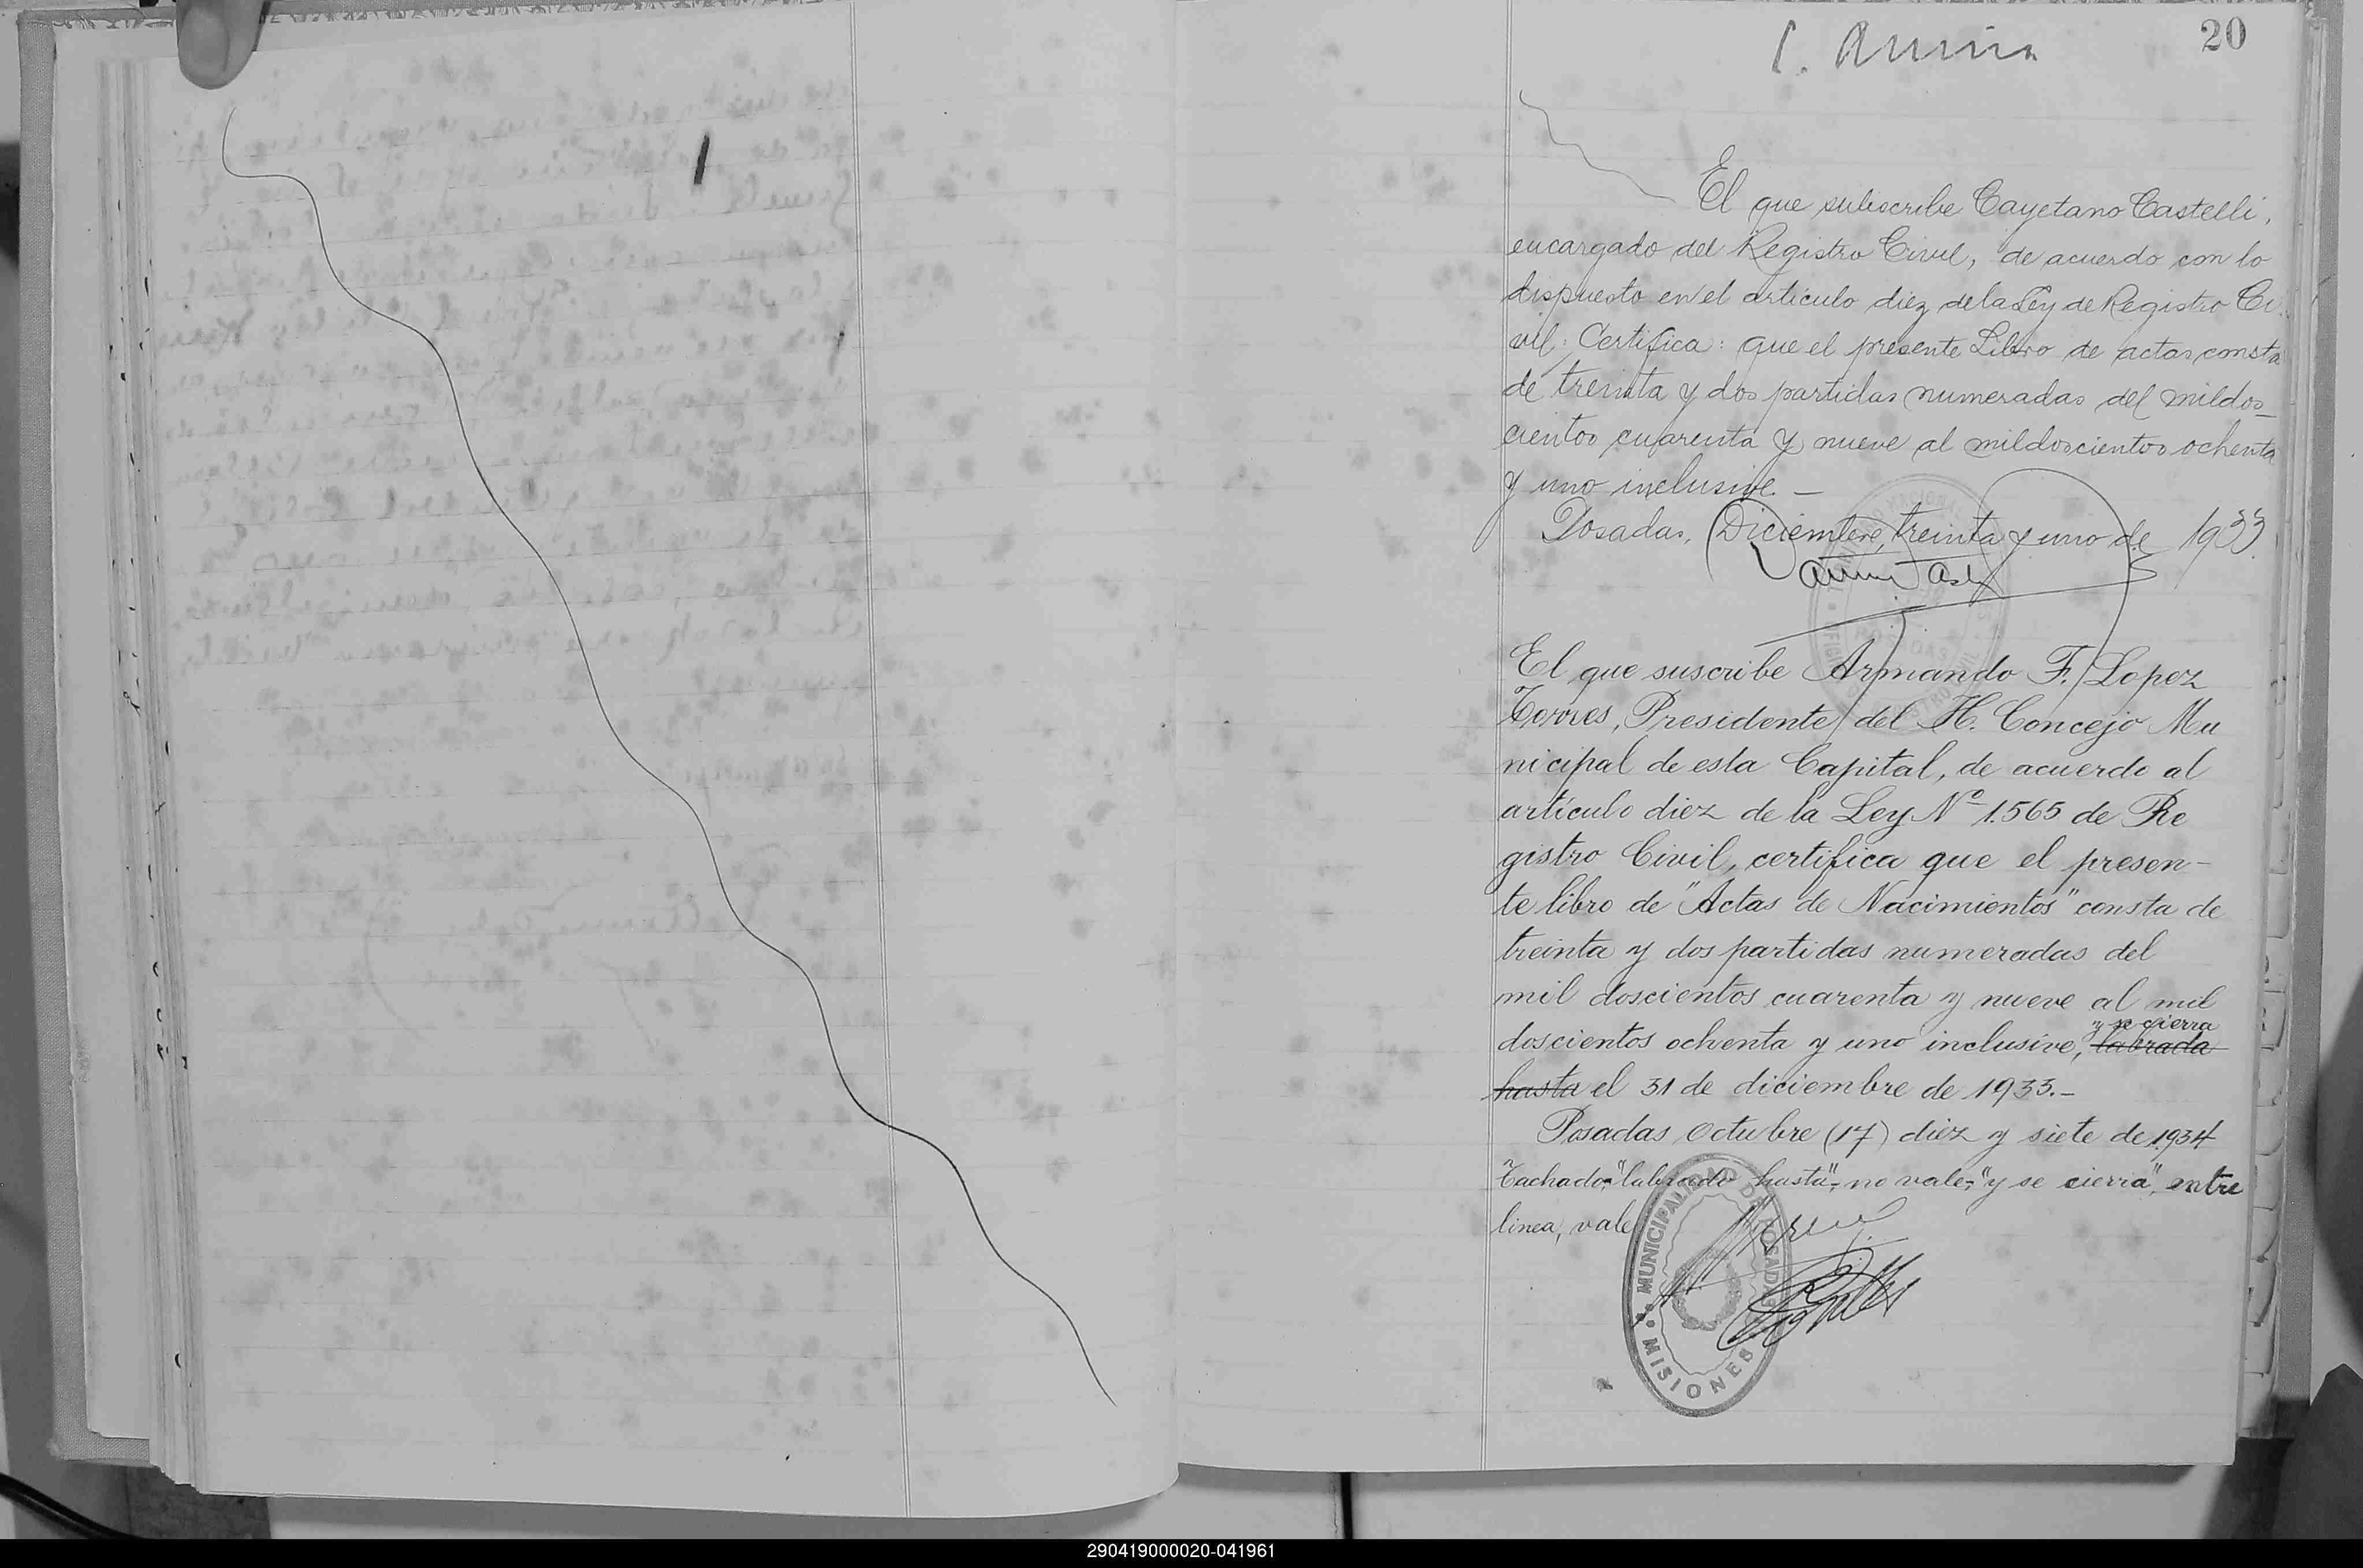 20
El que subscribe Cayetano Castelli,
encargado del Registro Civil, de acuerdo con lo
dispuesto en el artículo diez de la Ley de Registro Ci
vil: Certifica: que el presente Libro de actas consta
de treinta y dos partidas numeradas del mildos_
cientos cuarenta y nueve al mildoscientos ochenta
y uno inclusive. —
Posadas, Diciembre, treinta y uno de 1933.
El que suscribe Armando F. Lopez
Torres, Presidente del H. Concejo Mu
nicipal de esta Capital, de acuerdo al
artículo diez de la Ley Nº 1.565 de Re
gistro Civil, certifica que el presen-
te libro de "Actas de Nacimientos" consta de
treinta y dos partidas numeradas del
mil doscientos cuarenta y nueve al mil
y se cierra
doscientos ochenta y uno inclusive, labrada
hasta el 31 de diciembre de 1933.-
Posadas, Octubre (17) diez y siete de 1934
Tachado: "labrado hasta", no vale; "y se cierra", entre
linea, vale
MUNICIPALIDAD DE POSADAS
MISIONES
290419000020-041961